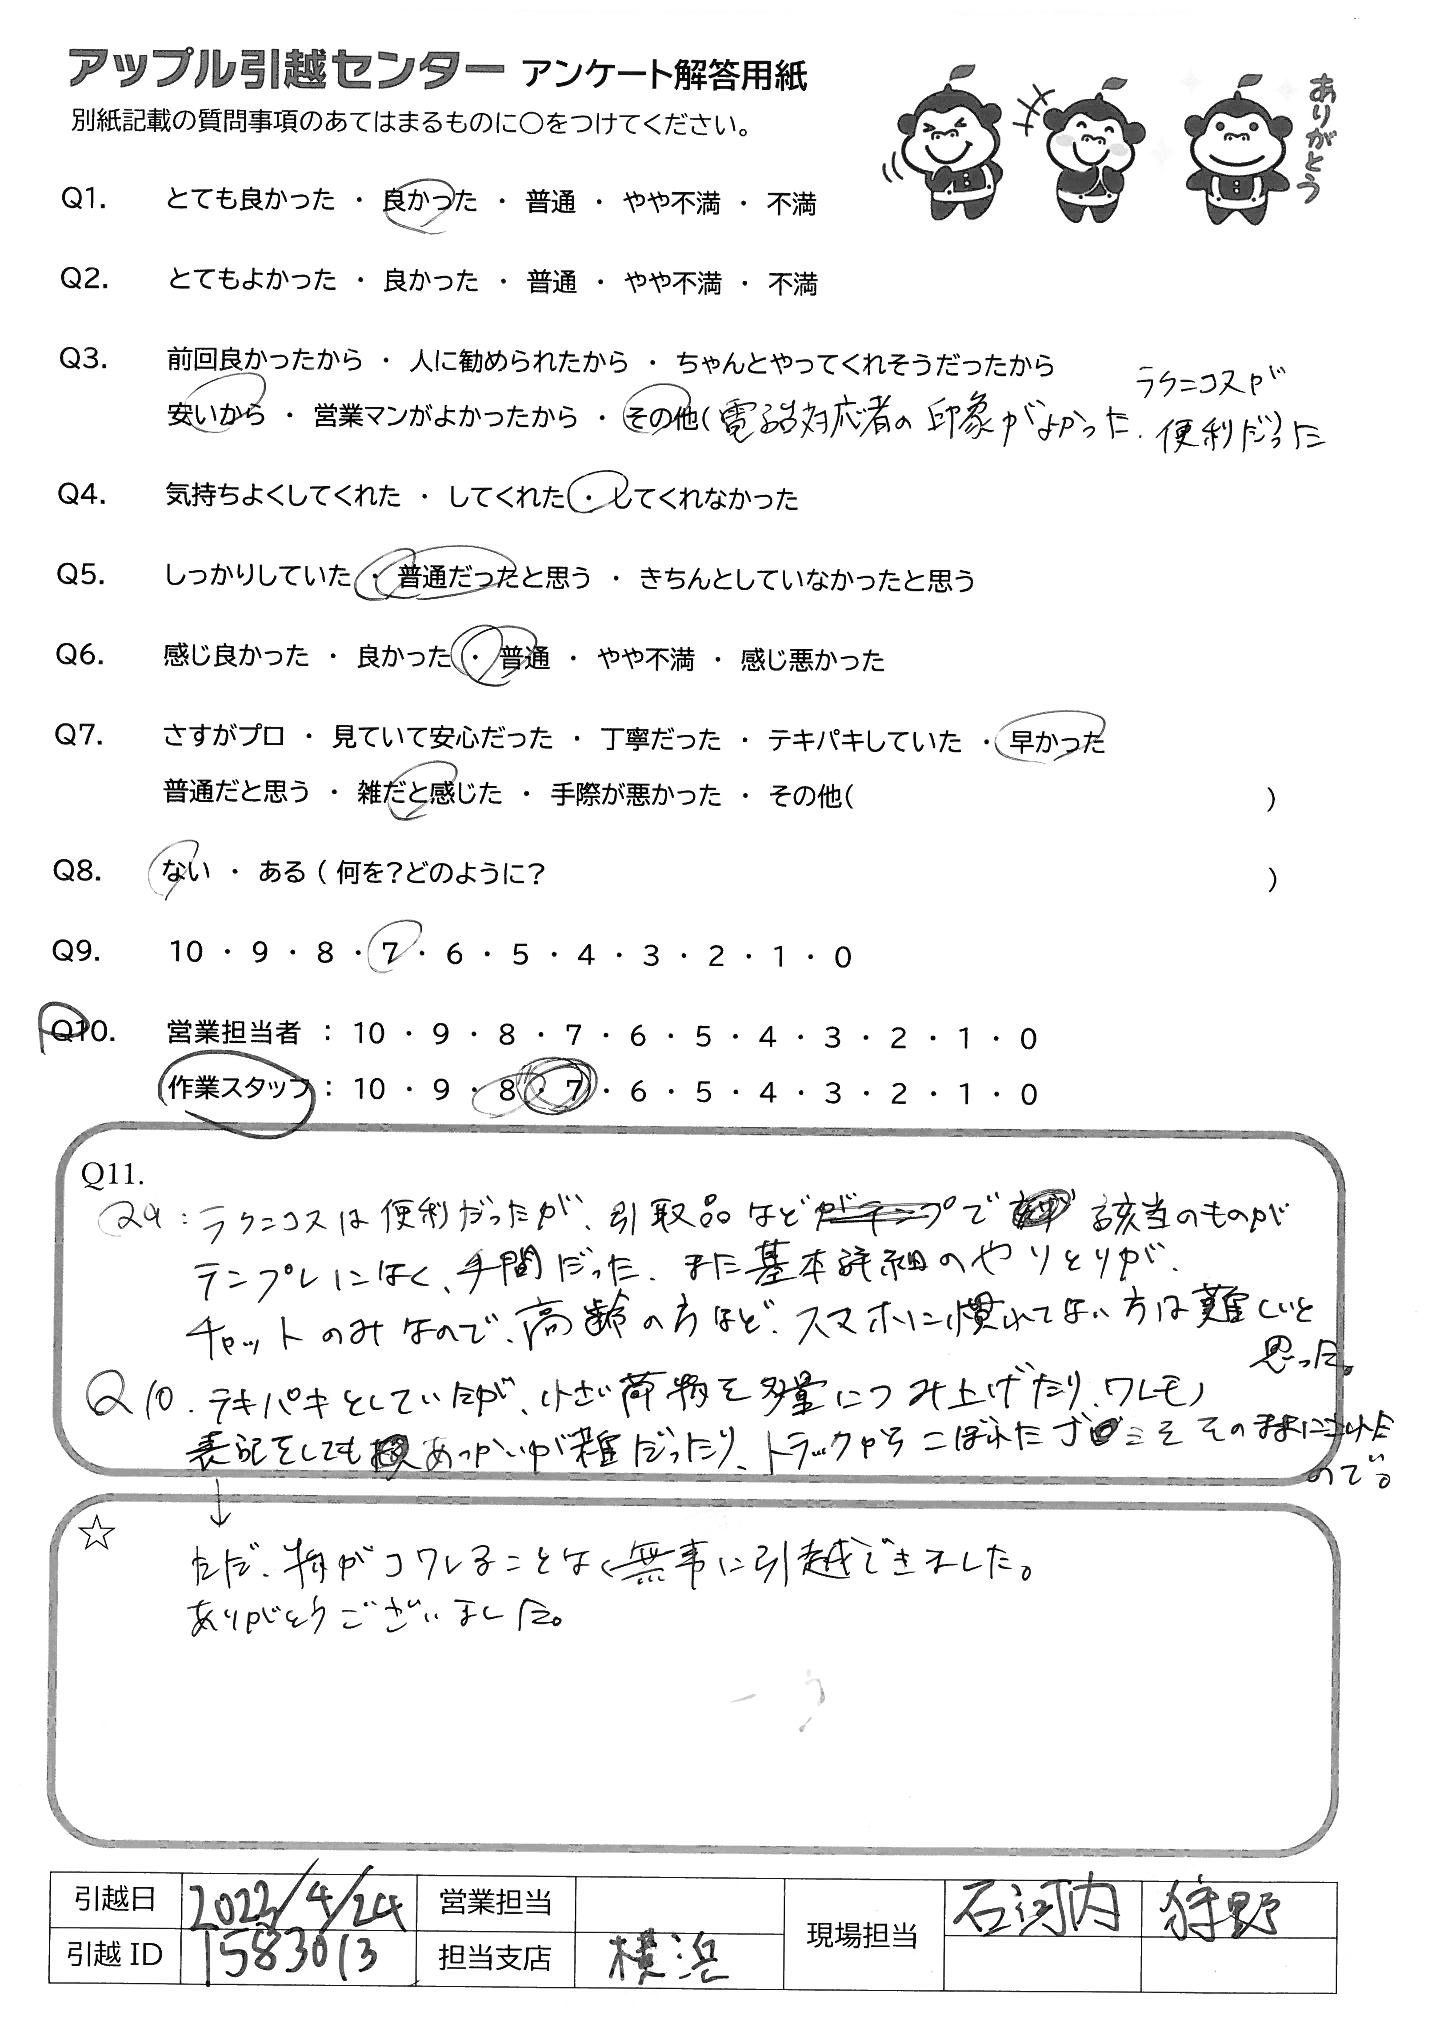 アップル引越センター アンケート解答用紙
別紙記載の質問事項のあてはまるものに○をつけてください。
ありがとう
Q1. とても良かった ・ 良かった ・ 普通 ・ やや不満 ・ 不満
Q2. とてもよかった ・ 良かった ・ 普通 ・ やや不満 ・ 不満
Q3. 前回良かったから ・ 人に勧められたから ・ ちゃんとやってくれそうだったから
安いから ・ 営業マンがよかったから ・ その他( 電話対応者の印象がよかった. ラクニコスが
便利だった )
Q4. 気持ちよくしてくれた ・ してくれた ・ してくれなかった
Q5. しっかりしていた ・ 普通だったと思う ・ きちんとしていなかったと思う
Q6. 感じ良かった ・ 良かった ・ 普通 ・ やや不満 ・ 感じ悪かった
Q7. さすがプロ ・ 見ていて安心だった ・ 丁寧だった ・ テキパキしていた ・ 早かった
普通だと思う ・ 雑だと感じた ・ 手際が悪かった ・ その他( )
Q8. ない ・ ある ( 何を?どのように? )
Q9. 10 ・ 9 ・ 8 ・ 7 ・ 6 ・ 5 ・ 4 ・ 3 ・ 2 ・ 1 ・ 0
Q10. 営業担当者 : 10 ・ 9 ・ 8 ・ 7 ・ 6 ・ 5 ・ 4 ・ 3 ・ 2 ・ 1 ・ 0
作業スタッフ : 10 ・ 9 ・ 8 ・ 7 ・ 6 ・ 5 ・ 4 ・ 3 ・ 2 ・ 1 ・ 0
Q11.
Q9 : ラクニコスは便利だったが、引取品などで 該当のものが
テンプレになく、手間だった. また基本詳細のやりとりが、
チャットのみなので、高齢の方など、スマホに慣れてない方は難しいと
思った。
Q10. テキパキとしていたが、小さい荷物を多量につみ上げたり、ワレモノ
表記をしても あつかいが雑だったり、トラックからこぼれたゴミをそのままにされた
ので。
↓
☆ ただ、物がコワレることなく無事に引越できました。
ありがとうございました。
引越日 2023/4/24 営業担当 現場担当 石河内 狩野
引越 ID 1583013 担当支店 横浜